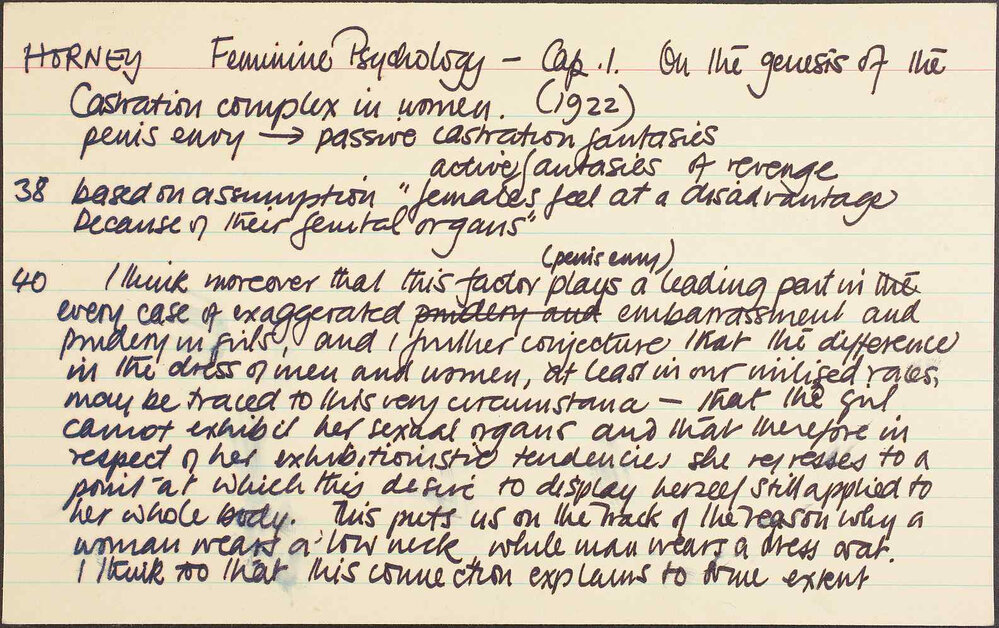 HORNEY Feminine Psychology – Cap. 1. On the genesis of the
Castration complex in women. (1922)
penis envy → passive castration fantasies
active fantasies of revenge
38 based on assumption "females feel at a disadvantage
because of their genital organs"
(penis envy)
40 I think moreover that this factor plays a leading part in the
every case of exaggerated prudery and embarrassment and
prudery in girls, and I further conjecture that the difference
in the dress of men and women, at least in our civilised races,
may be traced to this very circumstance – that the girl
cannot exhibit her sexual organs and that therefore in
respect of her exhibitionistic tendencies she regresses to a
point at which this desire to display herself still applied to
her whole body. This puts us on the track of the reason why a
woman wears a low neck while man wears a dress coat.
I think too that this connection explains to some extent